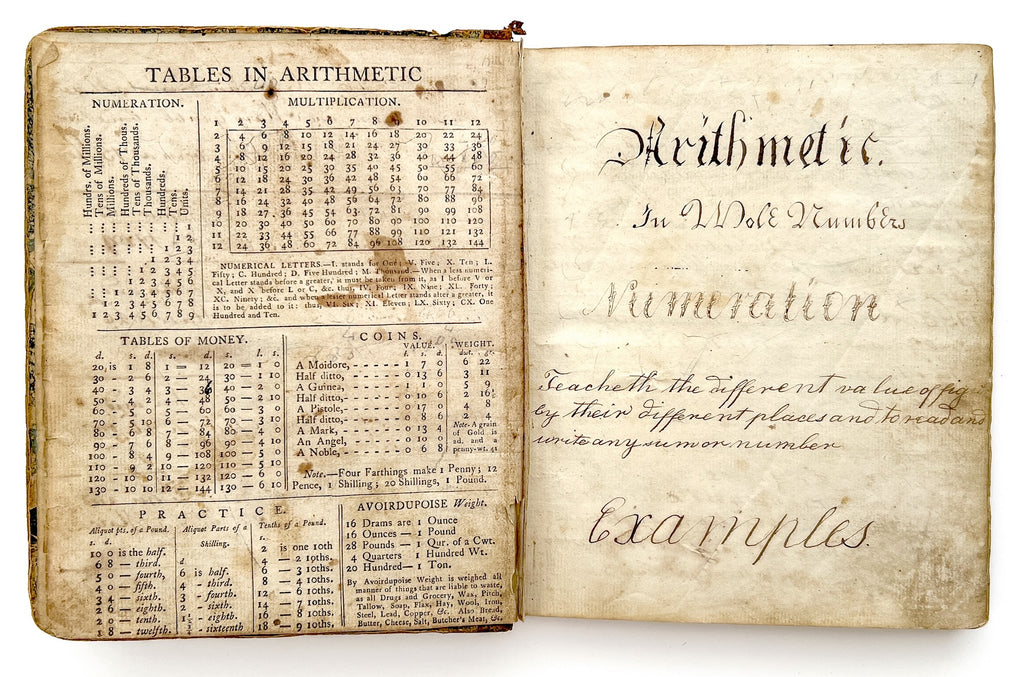 TABLES IN ARITHMETIC
NUMERATION.
Hundrs. of Millions.
Tens of Millions.
Millions.
Hundreds of Thous.
Tens of Thousands.
Thousands.
Hundreds.
Tens.
Units.
1
1 2
1 2 3
1 2 3 4
1 2 3 4 5
1 2 3 4 5 6
1 2 3 4 5 6 7
1 2 3 4 5 6 7 8
1 2 3 4 5 6 7 8 9
MULTIPLICATION.
1 2 3 4 5 6 7 8 9 10 11 12
2 4 6 8 10 12 14 16 18 20 22 24
3 6 9 12 15 18 21 24 27 30 33 36
4 8 12 16 20 24 28 32 36 40 44 48
5 10 15 20 25 30 35 40 45 50 55 60
6 12 18 24 30 36 42 48 54 60 66 72
7 14 21 28 35 42 49 56 63 70 77 84
8 16 24 32 40 48 56 64 72 80 88 96
9 18 27 36 45 54 63 72 81 90 99 108
10 20 30 40 50 60 70 80 90 100 110 120
11 22 33 44 55 66 77 88 99 110 121 132
12 24 36 48 60 72 84 96 108 120 132 144
NUMERICAL LETTERS.—I. stands for One; V. Five; X. Ten; L.
Fifty; C. Hundred; D. Five Hundred; M. Thousand.—When a less numeri-
cal Letter stands before a greater, it must be taken from it, as I before V or
X, and X before L or C, &c. thus, IV. Four; IX. Nine; XL. Forty;
XC. Ninety; &c. and when a lesser numerical Letter stands after a greater, it
is to be added to it; thus, VI. Six; XI. Eleven; LX. Sixty; CX. One
Hundred and Ten.
TABLES OF MONEY.
d. s. d. s. d. l. s.
20, is 1 8 1 — 12 20 — 1 0
30 - 2 6 2 — 24 30 — 1 10
40 - 3 4 3 — 36 40 — 2 0
50 - 4 2 4 — 48 50 — 2 10
60 - 5 0 5 — 60 60 — 3 0
70 - 5 10 6 — 72 70 — 3 10
80 - 6 8 7 — 84 80 — 4 0
90 - 7 6 8 — 96 90 — 4 10
100 - 8 4 9 — 108 100 — 5 0
110 - 9 2 10 — 120 110 — 5 10
120 - 10 0 11 — 132 120 — 6 0
130 - 10 10 12 — 144 130 — 6 10
COINS.
VALUE. WEIGHT.
l. s. d. dwt. gr.
A Moidore, - - - - - - 1 7 0 6 22
Half ditto, - - - - - - 0 13 6 3 11
A Guinea, - - - - - - 1 1 0 5 9
Half ditto, - - - - - - 0 10 6 2 16
A Pistole, - - - - - - 0 17 0 4 8
Half ditto, - - - - - - 0 8 6 2 4
A Mark, - - - - - - 0 13 4
An Angel, - - - - - - 0 10 0
A Noble, - - - - - - 0 6 8
Note. A grain
of Gold is
2d. and a
penny-wt. 4s
Note.—Four Farthings make 1 Penny; 12
Pence, 1 Shilling; 20 Shillings, 1 Pound.
PRACTICE.
Aliquot pts. of a Pound.
s. d.
10 0 is the half.
6 8 — third.
5 0 — fourth,
4 0 — fifth.
3 4 — sixth.
2 6 — eighth.
2 0 — tenth.
1 8 — twelfth.
Aliquot Parts of a
Shilling.
d
6 is half.
4 - third.
3 - fourth.
2 - sixth.
1½ - eighth.
¾ - sixteenth
Tenths of a Pound.
s.
2 is one 10th
4 — 2 10ths.
6 — 3 10ths.
8 — 4 10ths.
12 — 6 10ths.
14 — 7 10ths.
16 — 8 10ths.
18 — 9 10ths.
AVOIRDUPOISE Weight.
16 Drams are 1 Ounce
16 Ounces — 1 Pound
28 Pounds — 1 Qur. of a Cwt.
4 Quarters 1 Hundred Wt.
20 Hundred— 1 Ton.
By Avoirdupoise Weight is weighed all
manner of things that are liable to waste,
as all Drugs and Grocery, Wax, Pitch,
Tallow, Soap, Flax, Hay, Wool, Iron,
Steel, Lead, Copper, &c. Also Bread,
Butter, Cheese, Salt, Butcher's Meat, &c.
Arithmetic.
In Wole Numbers
Numeration
Teacheth the different value of fig
by their different places and to read and
write any sum or number
Examples.